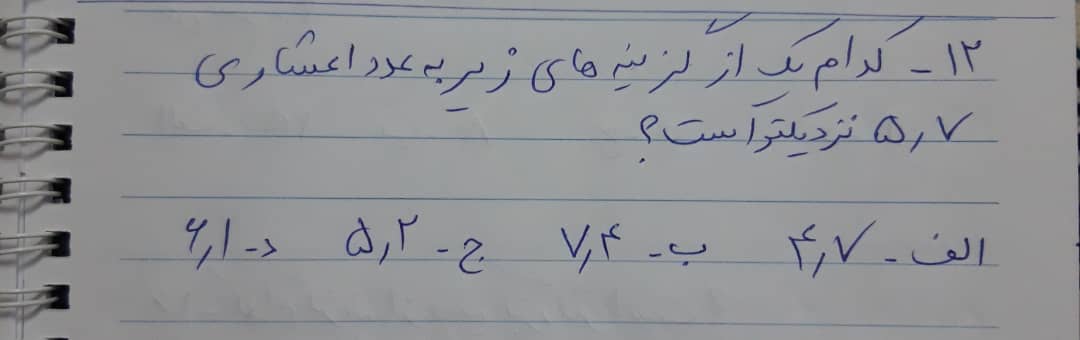 ۱۲ - کدام یک از گزینه های زیر به عدد اعشاری
۵٫۷ نزدیکتر است؟
الف - ۴٫۷ ب - ۷٫۴ ج - ۵٫۲ د - ۶٫۱